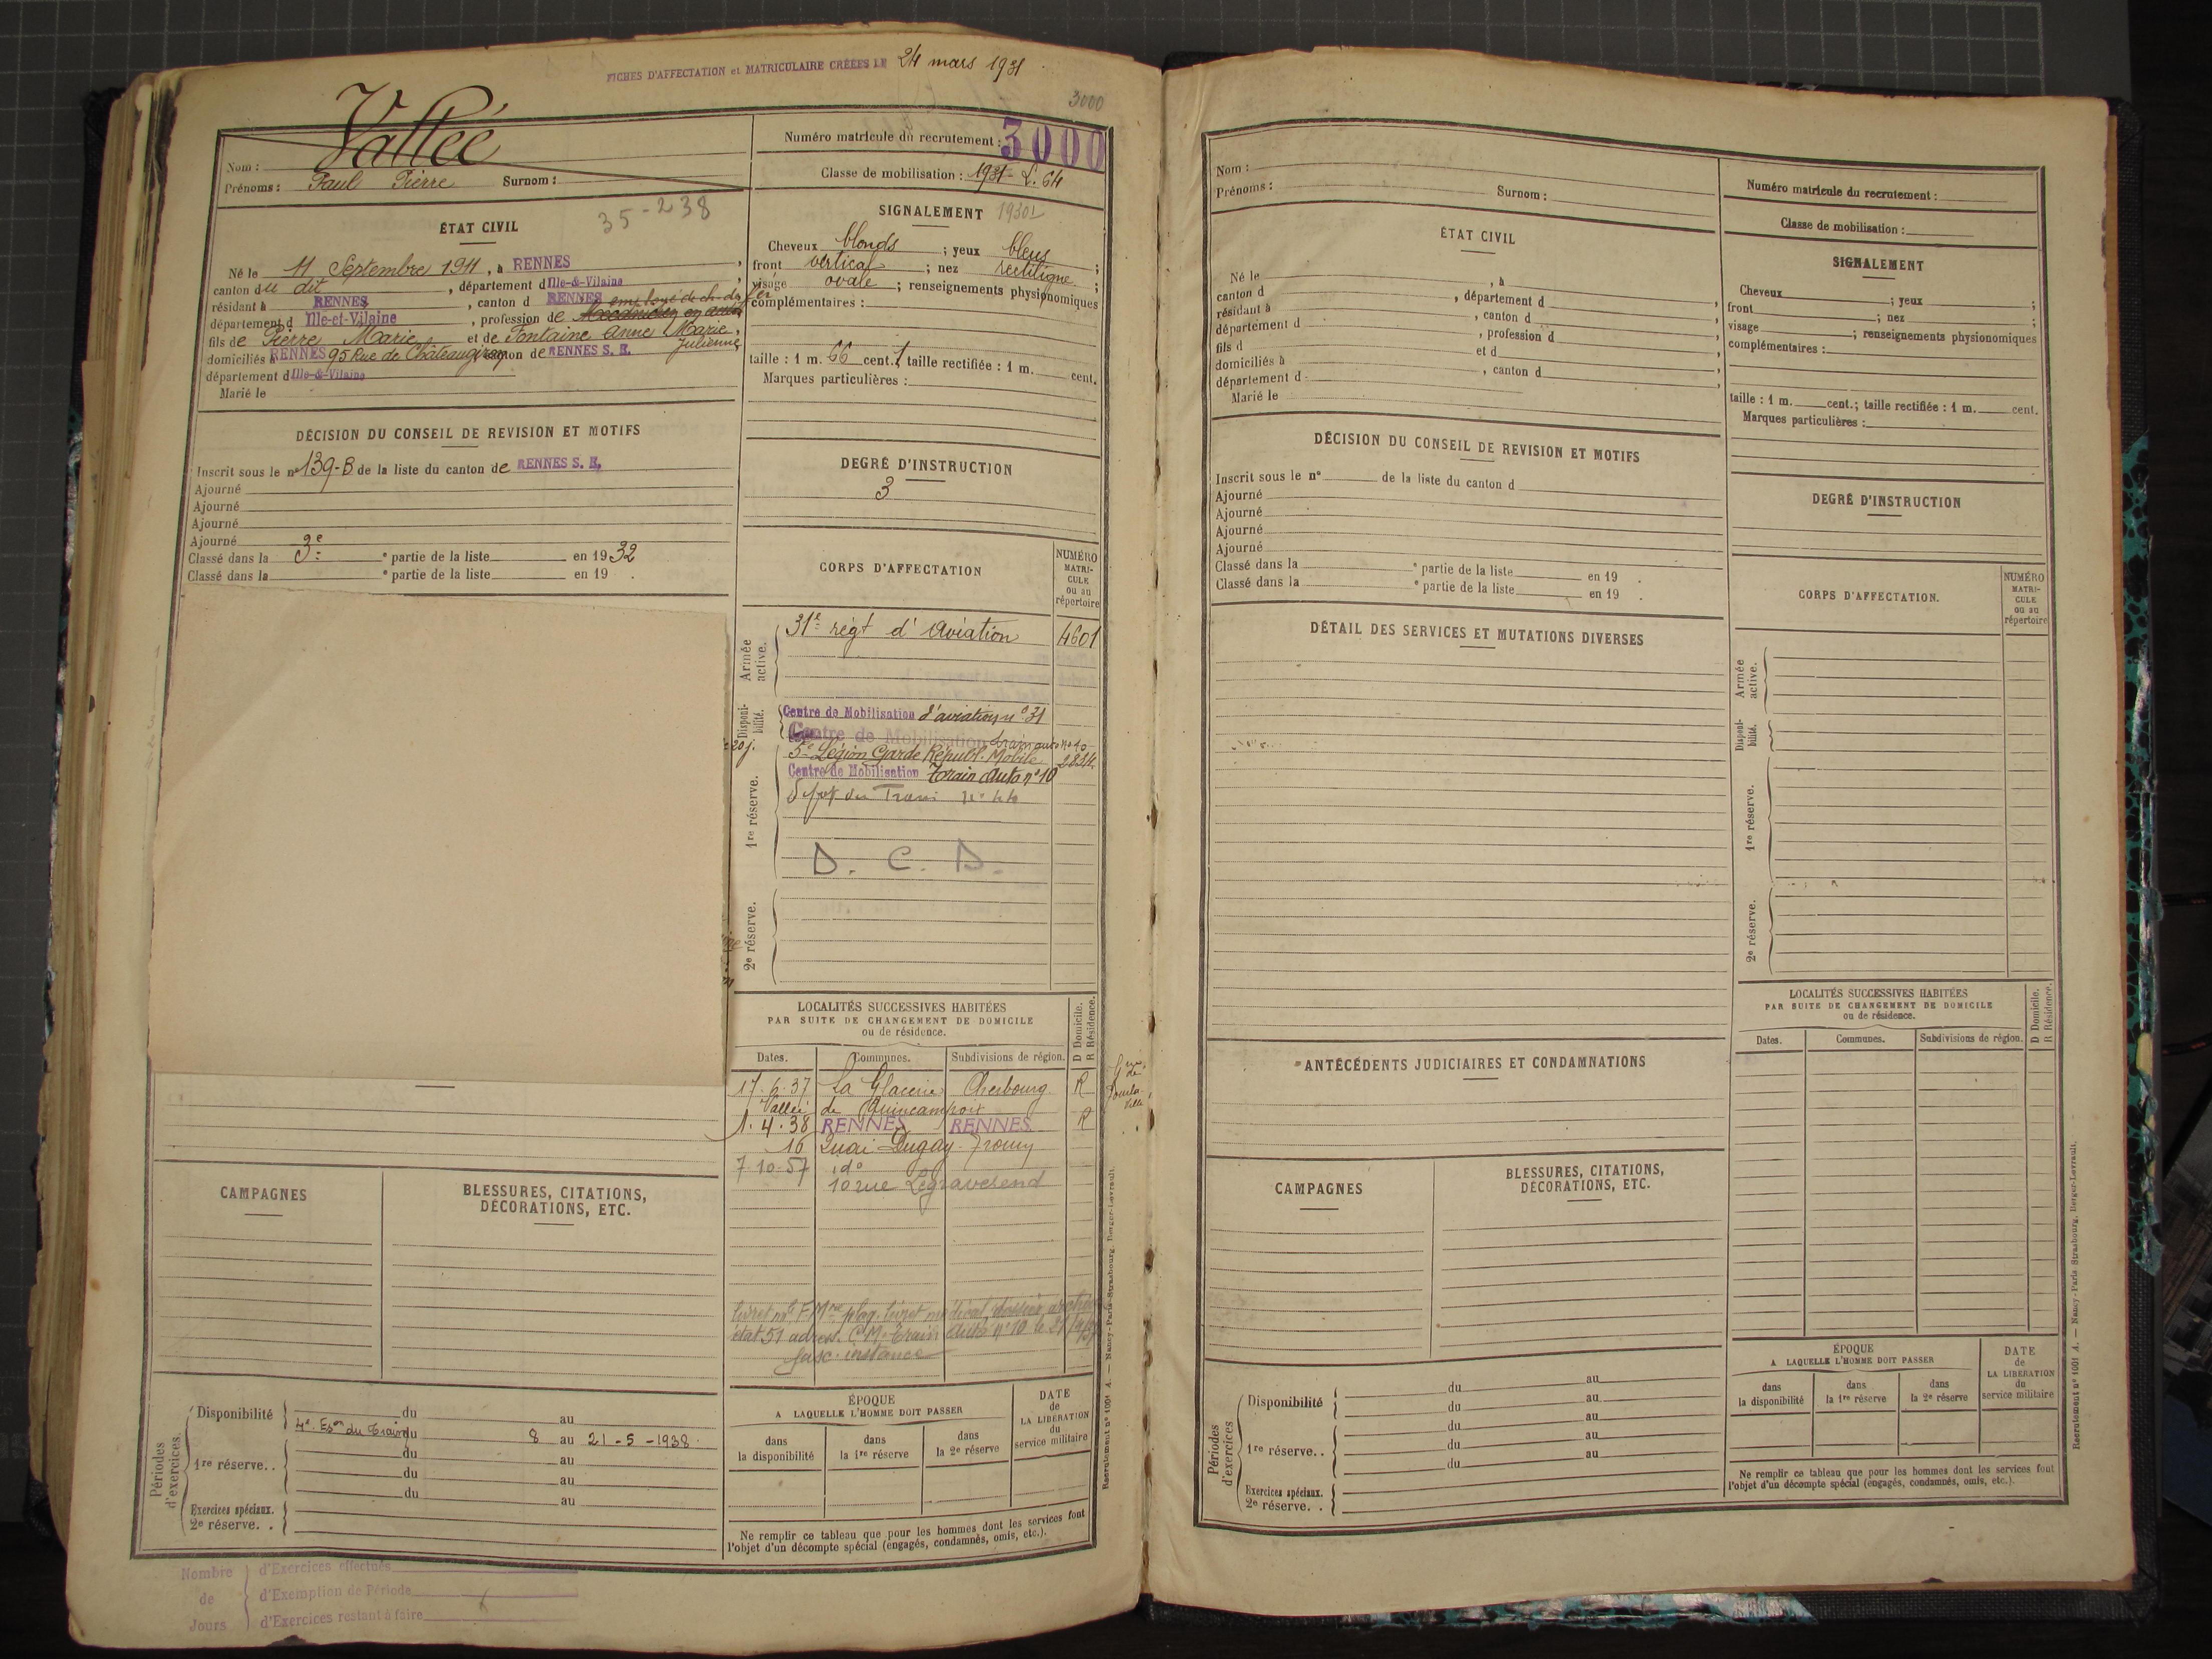 FICHES D'AFFECTATION et MATRICULAIRE CRÉÉES LE 24 mars 1931
3000
Vallée
Nom :
Prénoms : Paul Pierre Surnom :
Numéro matricule du recrutement : 3000
Classe de mobilisation : 1931
35-238
ÉTAT CIVIL
Né le 11 Septembre 1911, à RENNES
canton du dit, département d Ille-&-Vilaine
résidant à RENNES, canton d RENNES
département d Ille-et-Vilaine, profession de employé de ch. de fer
fils de Pierre Marie et de Fontaine Anne Marie, Julienne
domiciliés à RENNES 95 Rue de Châteaugiron, canton de RENNES S. E.
département d Ille-&-Vilaine
Marié le
SIGNALEMENT
Cheveux blonds ; yeux bleus ;
front vertical ; nez rectiligne ;
visage ovale ; renseignements physionomiques
complémentaires :
taille : 1 m. 66 cent. ; taille rectifiée : 1 m. cent.
Marques particulières :
DÉCISION DU CONSEIL DE REVISION ET MOTIFS
Inscrit sous le n° 139-B de la liste du canton de RENNES S. E.
Ajourné
Ajourné
Ajourné
Ajourné
Classé dans la 3e ° partie de la liste en 1932
Classé dans la ° partie de la liste en 19 .
DEGRÉ D'INSTRUCTION
3
CORPS D'AFFECTATION
NUMÉRO MATRI-CULE ou au répertoire
Armée active.
31e régt d'Aviation 4601
Disponi-bilité.
Centre de Mobilisation d'aviation n° 31
Centre de Mobilisation train auto n° 10
5e Légion Garde Républ. Mobile
1re réserve.
Centre de Mobilisation Train Auto n° 10
D. C. D.
2e réserve.
LOCALITÉS SUCCESSIVES HABITÉES
PAR SUITE DE CHANGEMENT DE DOMICILE
ou de résidence.
D Domicile.
R Résidence.
Dates. Communes. Subdivisions de région.
17.6.37 La Glacerie Cherbourg R
Vallée de Quincampoix
1.4.38 RENNES RENNES R
16 Quai Dugay-Trouin
7.10.57 do
10 rue Legraverend
CAMPAGNES
BLESSURES, CITATIONS,
DÉCORATIONS, ETC.
fasc. instance
Périodes d'exercices.
Disponibilité du au
4e Eson du Train du 8 au 21-5-1938
1re réserve. . du au
du au
du au
Exercices spéciaux.
2e réserve. .
ÉPOQUE
A LAQUELLE L'HOMME DOIT PASSER
dans la disponibilité
dans la 1re réserve
dans la 2e réserve
DATE de LA LIBÉRATION du service militaire
Ne remplir ce tableau que pour les hommes dont les services font
l'objet d'un décompte spécial (engagés, condamnés, omis, etc.).
Recrutement n° 1001 A. — Nancy-Paris-Strasbourg, Berger-Levrault.
Nombre de Jours
d'Exercices effectués
d'Exemption de Période
d'Exercices restant à faire
Nom :
Prénoms : Surnom :
Numéro matricule du recrutement :
Classe de mobilisation :
ÉTAT CIVIL
Né le , à
canton d , département d
résidant à , canton d
département d , profession d
fils d et d
domiciliés à , canton d
département d
Marié le
SIGNALEMENT
Cheveux ; yeux ;
front ; nez ;
visage ; renseignements physionomiques
complémentaires :
taille : 1 m. cent. ; taille rectifiée : 1 m. cent.
Marques particulières :
DÉCISION DU CONSEIL DE REVISION ET MOTIFS
Inscrit sous le n° de la liste du canton d
Ajourné
Ajourné
Ajourné
Ajourné
Classé dans la ° partie de la liste en 19 .
Classé dans la ° partie de la liste en 19 .
DEGRÉ D'INSTRUCTION
DÉTAIL DES SERVICES ET MUTATIONS DIVERSES
CORPS D'AFFECTATION.
NUMÉRO MATRI-CULE ou au répertoire
Armée active.
Disponi-bilité.
1re réserve.
2e réserve.
ANTÉCÉDENTS JUDICIAIRES ET CONDAMNATIONS
LOCALITÉS SUCCESSIVES HABITÉES
PAR SUITE DE CHANGEMENT DE DOMICILE
ou de résidence.
D Domicile.
R Résidence.
Dates. Communes. Subdivisions de région.
CAMPAGNES
BLESSURES, CITATIONS,
DÉCORATIONS, ETC.
Périodes d'exercices.
Disponibilité du au
du au
1re réserve. . du au
du au
du au
Exercices spéciaux.
2e réserve. .
ÉPOQUE
A LAQUELLE L'HOMME DOIT PASSER
dans la disponibilité
dans la 1re réserve
dans la 2e réserve
DATE de LA LIBÉRATION du service militaire
Ne remplir ce tableau que pour les hommes dont les services font
l'objet d'un décompte spécial (engagés, condamnés, omis, etc.).
Recrutement n° 1001 A. — Nancy-Paris-Strasbourg, Berger-Levrault.